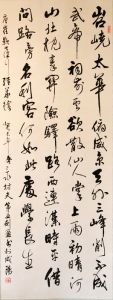 岧嶢太華俯咸京天外三峰削不成
武帝祠前雲欲散仙人掌上雨初晴河
山北枕秦關險驛路西連漢時平借
問路旁名利客何如此處學長生